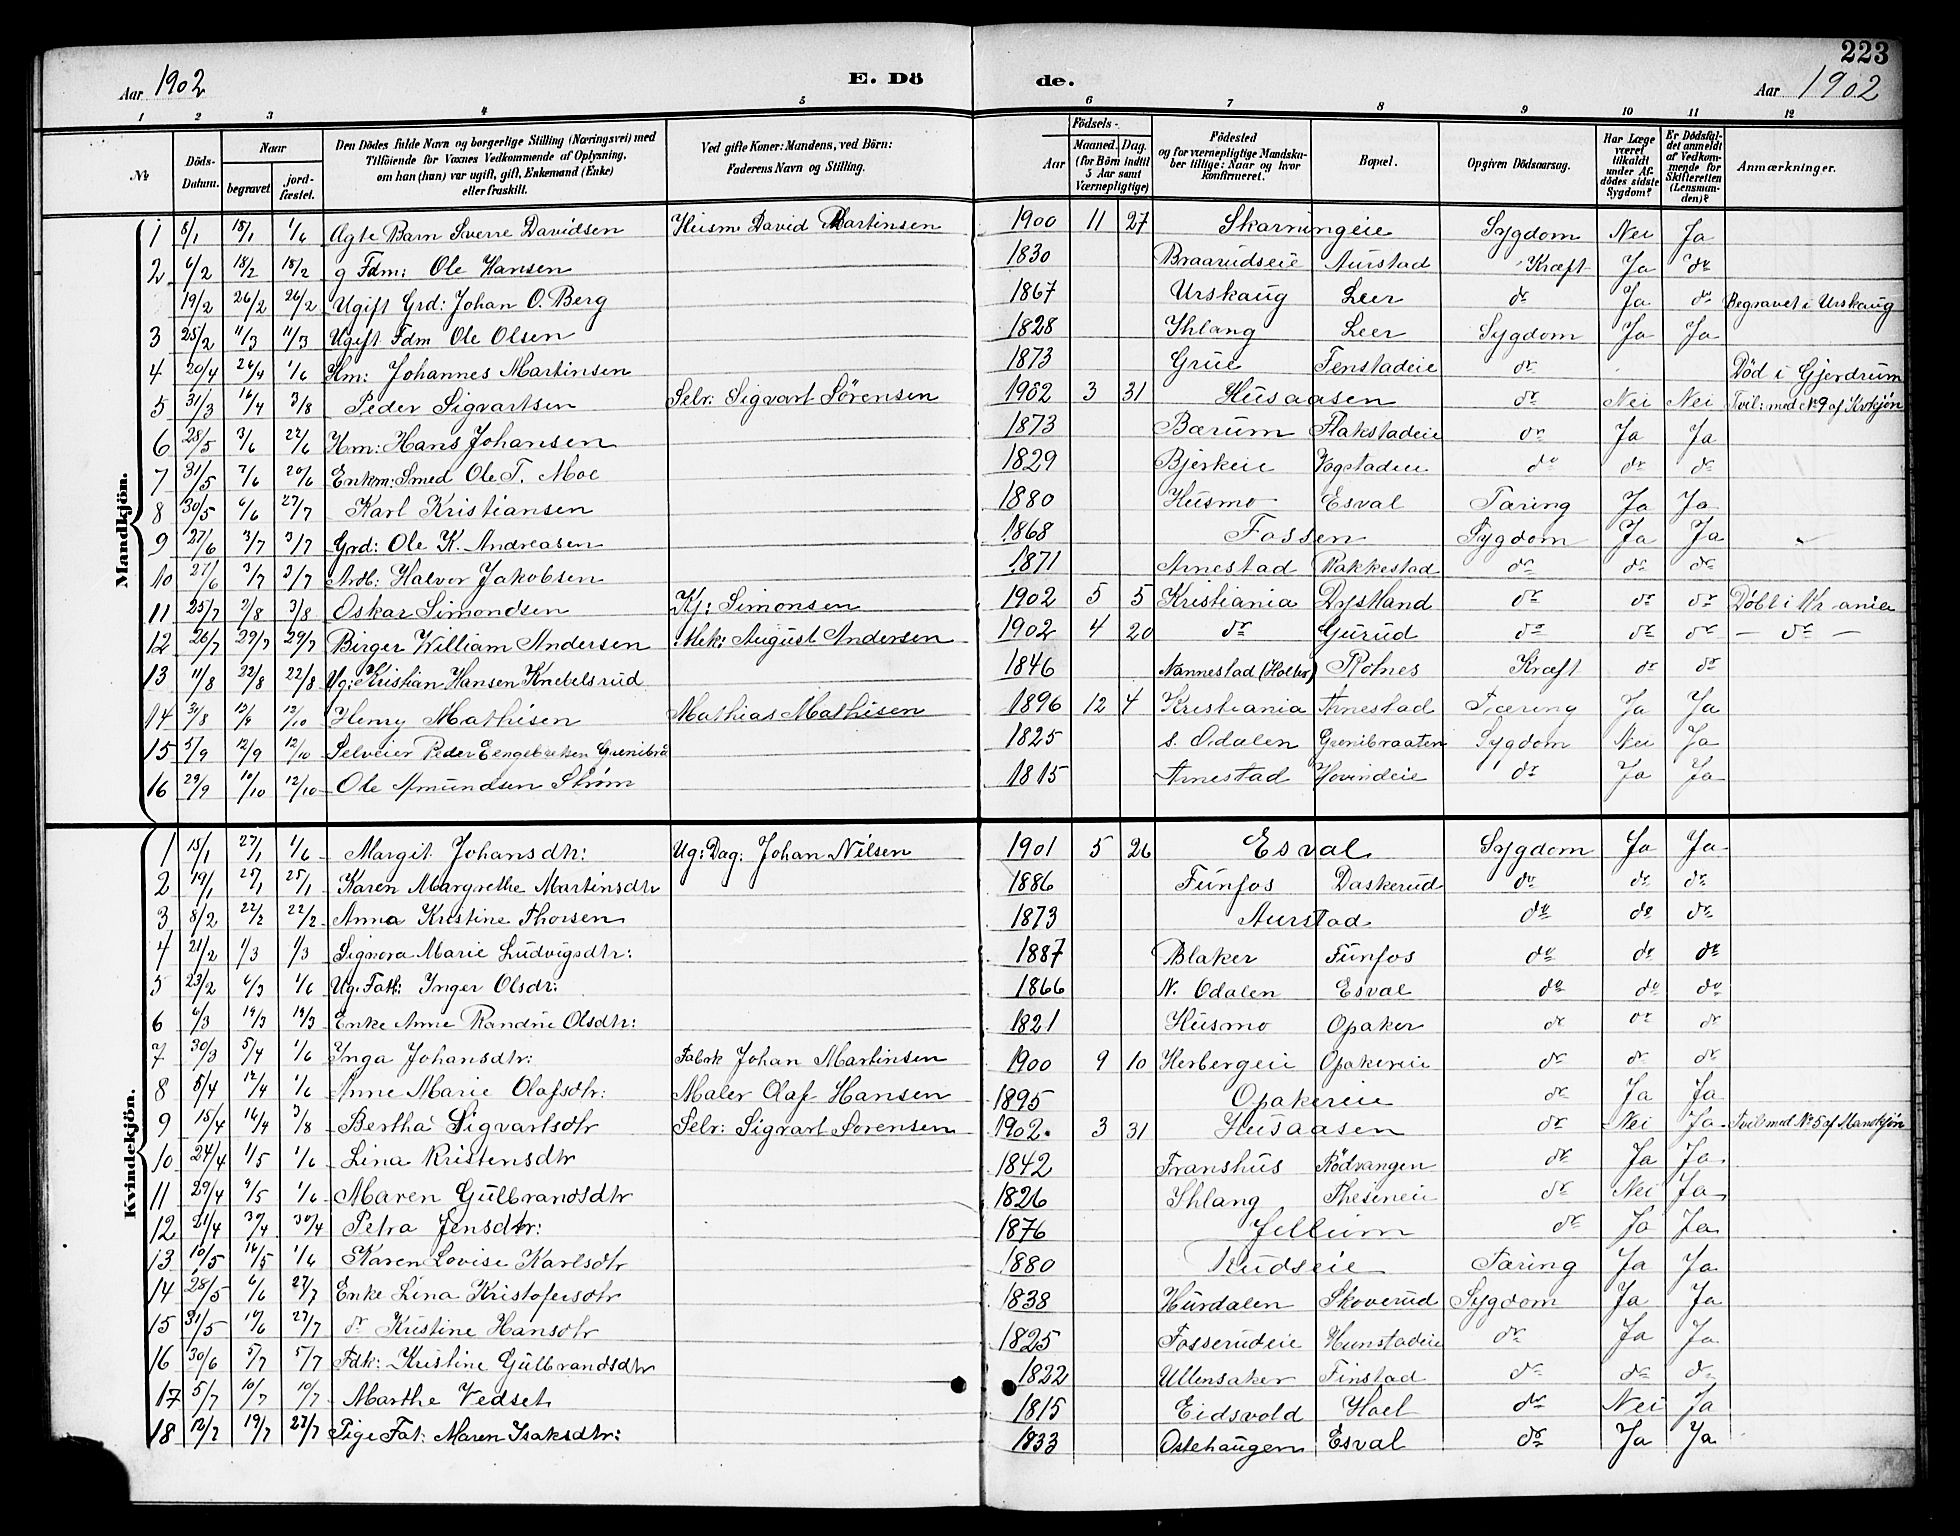 223
Aar 1902 E. Dö de. Aar 1902
1 2 3 4 5 6 7 8 9 10 11 12
No Döds-Datum. Naar begravet jordfæstet. Den Dödes fulde Navn og borgerlige Stilling (Næringsvei) med Tilföiende for Voxnes Vedkommende af Oplysning, om han (hun) var ugift, gift, Enkemand (Enke) eller fraskilt. Ved gifte Koner: Mandens, ved Börn: Faderens Navn og Stilling. Födsels- Aar Maaned. Dag. (for Börn indtil 5 Aar samt Værnepligtige) Födested og for værnepligtige Mandskaber tillige: Naar og hvor konfirmeret. Bopæl. Opgiven Dödsaarsag. Har Læge været tilkaldt under Afdödes sidste Sygdom? Er Dödsfaldet anmeldt af Vedkommende for Skifteretten (Lensmanden)? Anmærkninger.
Mandkjön.
1 8/1 18/1 1/6 Ægte Barn Sverre Davidsen Husm David Martinsen 1900 11 27 Skarningeie Sygdom Nei Ja
2 6/2 18/2 18/2 g Fdm: Ole Hansen 1830 Braarudseie Aurstad Kræft Ja do
19/2 26/2 26/2 Ugift Grd: Johan O. Berg 1867 Urskaug Leer do Ja do Begravet i Urskaug
3 25/2 11/3 11/3 Ugift Fdm Ole Olsen 1828 Ihlang Leer Sygdom Ja Ja
4 20/4 26/4 1/6 Hm: Johannes Martinsen 1873 Grue Fenstadeie do Död i Gjerdrum
5 31/3 16/4 3/8 Peder Sigvartsen Selv: Sigvart Sörensen 1902 3 31 Husaasen do Nei Nei Tvil: med No 9 af Kvkjön
6 28/5 3/6 22/6 Hm: Hans Johansen 1873 Bærum Flakstadeie do Ja Ja
7 31/5 7/6 20/6 Enkm: Smed Ole T. Moe 1829 Bjerkeie Vogstadeie do do do
8 30/5 6/6 27/7 Karl Kristiansen 1880 Husmo Esval Tæring Ja Ja
9 27/6 3/7 3/7 Grd: Ole K. Andreasen 1868 Fossen Sygdom Ja Ja
10 27/6 3/7 3/7 Ardb: Halvor Jakobsen 1871 Arnestad Rakkestad do do do
11 25/7 2/8 3/8 Oskar Simondsen Kj: Simonsen 1902 5 5 Kristiania Dystland do do do Döbt i Kr-ania
12 26/7 29/7 29/7 Birger William Andersen Mek: August Andersen 1902 4 20 do Gurud do do do — do —
13 11/8 22/8 22/8 Ug: Kristian Hansen Knebelsrud 1846 Nannestad (Holter) Rotnes Kræft do do
14 31/8 12/9 12/10 Henry Mathisen Mathias Mathisen 1896 12 4 Kristiania Arnestad Tæring Ja Ja
15 5/9 12/9 12/10 Selveier Peder Eengebretsen Grenibrå 1825 s. Odalen Grenibraaten Sygdom Nei Ja
16 29/9 10/10 12/10 Ole Amundsen Ström 1815 Arnestad Hovindeie do Ja Ja
Kvindekjön.
1 15/1 27/1 1/6 Margit Johansdtr: Ug: Dag: Johan Nilsen 1901 5 26 Esval Sygdom Ja Ja
2 19/1 25/1 25/1 Karen Margrethe Martinsdtr 1886 Funfos Daskerud do do do
3 8/2 22/2 22/2 Anna Kristine Thorsen 1873 Aurstad do do do
4 21/2 1/3 1/3 Signora Marie Ludvigsdtr: 1887 Blaker Funfos do do do
5 23/2 6/3 1/6 Ug. Fatt: Inger Olsdr: 1866 N. Odalen Esval do do do
6 6/3 14/3 14/3 Enke Anne Randine Olsdtr: 1821 Husmo Opaker do do do
7 30/3 5/4 1/6 Inga Johansdtr: Fabrk Johan Martinsen 1900 9 10 Herbergeie Opakereie do do do
8 5/4 12/4 1/6 Anne Marie Olafsdtr: Maler Olaf Hansen 1895 Opakereie do Ja Ja
9 15/4 16/4 3/8 Bertha Sigvartsdtr Selv: Sigvart Sorensen 1902. 3 31 Husaasen do Nei Ja Tvil med No 5 af Mandkjön
10 24/4 1/5 1/6 Lina Kristensdtr 1842 Franshus Rödvangen do Ja Ja
11 29/4 9/5 1/6 Maren Gulbrandsdtr 1826 Ihlang Theseneie do Nei Ja
12 21/4 30/4 30/4 Petra Jensdtr: 1876 Jellum do Ja Ja
13 10/5 16/5 1/6 Karen Lovise Karlsdtr 1880 Rudseie Tæring Ja Ja
14 28/5 6/6 27/7 Enke Lina Kristofersdtr 1838 Hurdalen Skoverud Sygdom Ja Ja
15 31/5 10/6 27/7 do Kristine Hansdtr 1825 Fosserudeie Hunstadeie do Ja Ja
16 30/6 5/7 5/7 Fdk: Kristine Gulbrandsdtr 1822 Ullensaker Finstad do do do
17 5/7 10/7 10/7 Marthe Vedset 1815 Eidsvold Hoel do Nei Ja
18 12/7 19/7 27/7 Pige Fat: Maren Isaksdtr: 1833 Ostehaugen Esval do Ja Ja